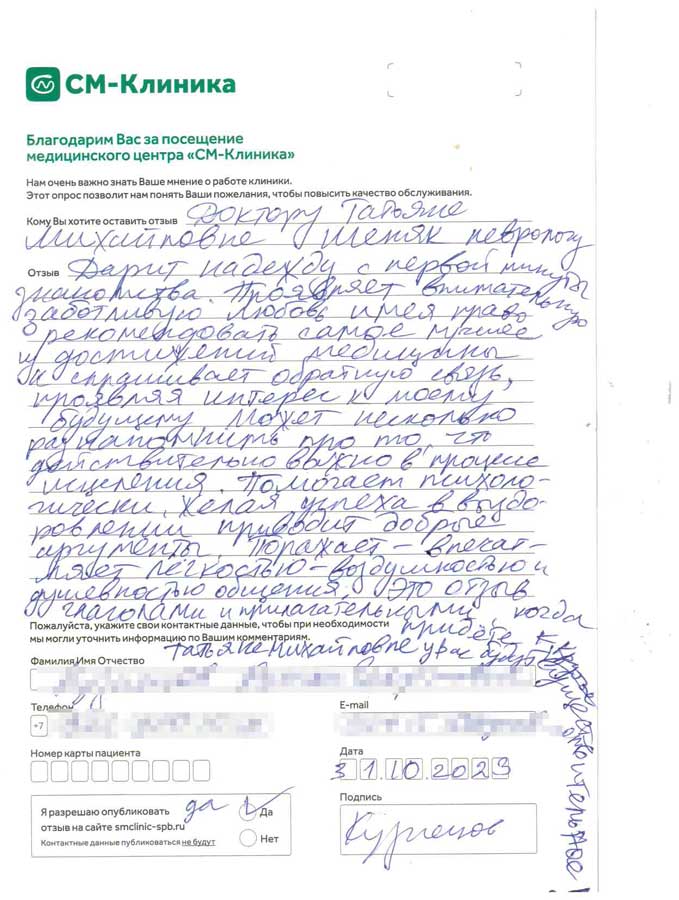 СМ-Клиника
Благодарим Вас за посещение
медицинского центра «СМ-Клиника»
Нам очень важно знать Ваше мнение о работе клиники.
Этот опрос позволит нам понять Ваши пожелания, чтобы повысить качество обслуживания.
Кому Вы хотите оставить отзыв Доктору Татьяне
Михайловне Шепяк неврологу
Отзыв Дарит надежду с первой минуты
знакомства. Проявляет внимательную
заботливую любовь имея право
рекомендовать самое лучшее
из достижений медицины
и спрашивает обратную связь,
проявляя интерес к моему
будущему. Может несколько
раз напомнить про то, что
действительно важно в процессе
исцеления. Помогает психоло-
гически, желая успеха в выздо-
ровлении приводит добрые
аргументы. Поражает - впечат-
ляет лёгкостью - воздушностью и
душевностью общения. Это отзыв
глаголами и прилагательными, когда
Пожалуйста, укажите свои контактные данные, чтобы при необходимости
придёте к
мы могли уточнить информацию по Вашим комментариям.
Татьяне Михайловне у вас будут
существительное!
Фамилия Имя Отчество
Телефон
E-mail
+7
Номер карты пациента
Дата
31.10.2023
Я разрешаю опубликовать да Да
отзыв на сайте smclinic-spb.ru
Контактные данные публиковаться не будут
Нет
Подпись